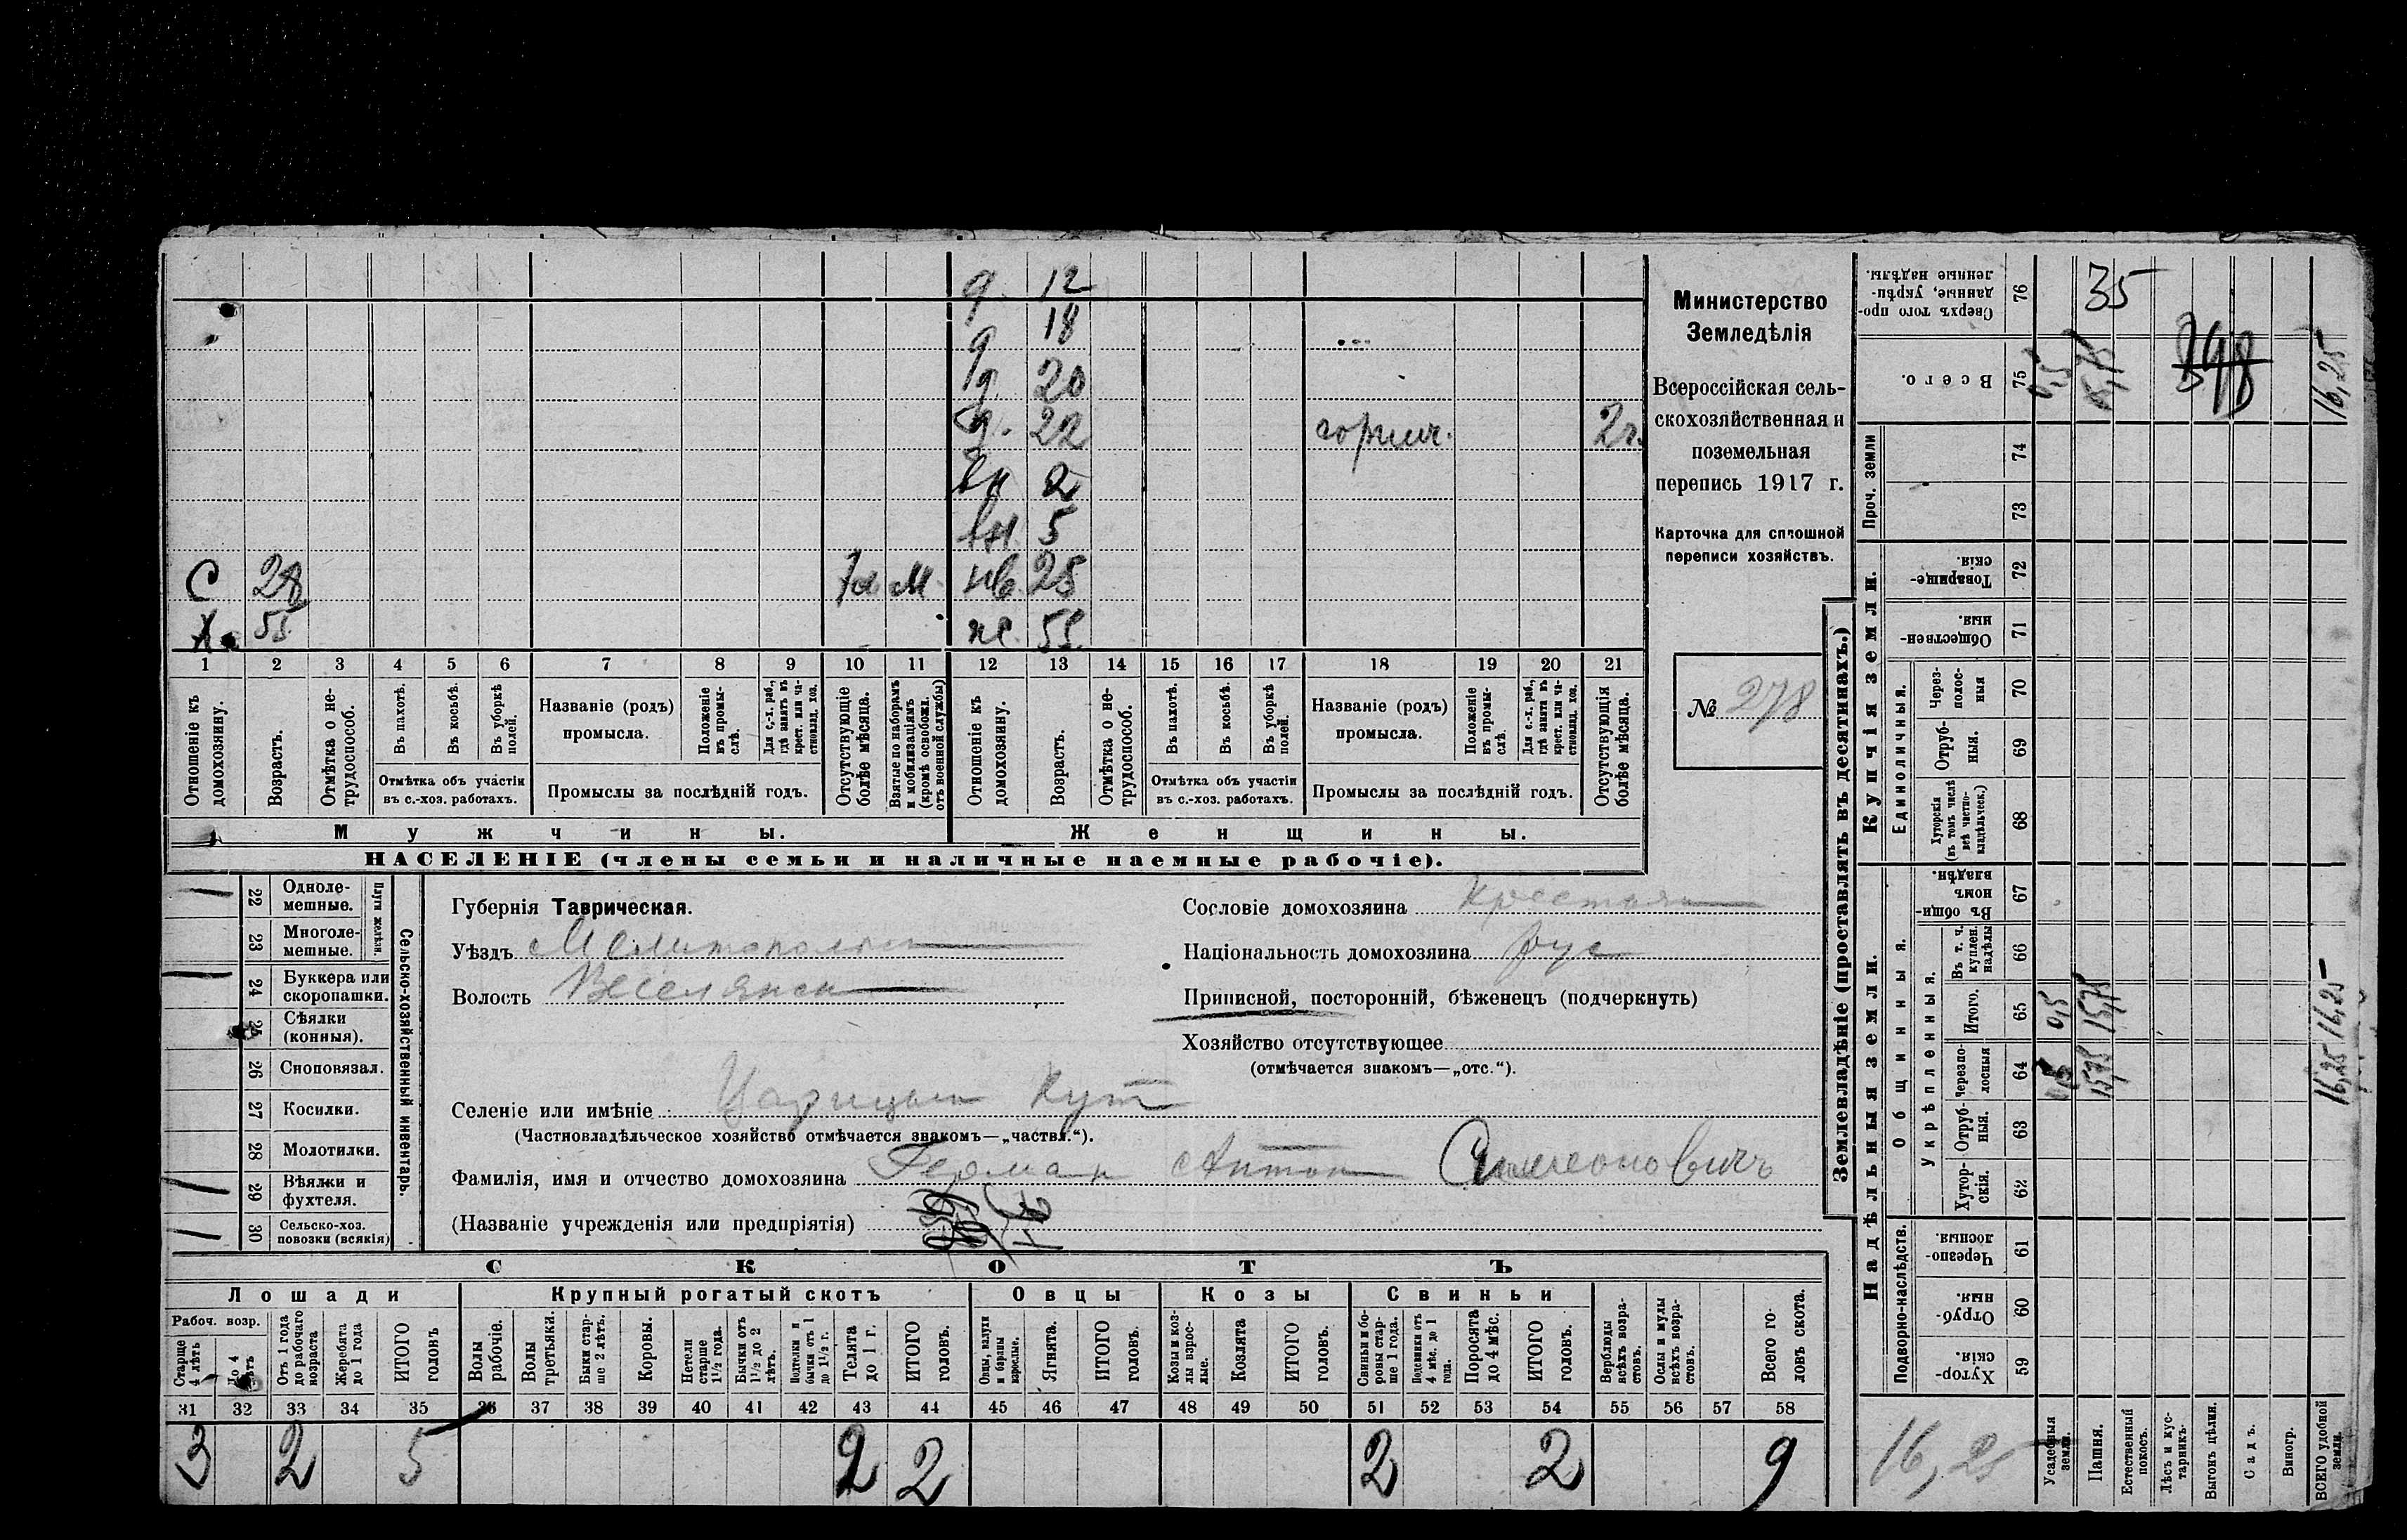 д. 12
18
д 20
д. 22 горнич. 2 г.
вн 2
вн. 5
С 28 м нв 25
Х. 55 ж. 55
1 2 3 4 5 6 7 8 9 10 11 12 13 14 15 16 17 18 19 20 21
Отношеніе къ домохозяину.
Возрастъ.
Отмѣтка о не-трудоспособ.
Въ пахотѣ.
Въ косьбѣ.
Въ уборкѣ полей.
Отмѣтка объ участіи въ с.-хоз. работахъ.
Названіе (родъ) промысла.
Положеніе въ промы-слѣ.
Для с.-х. раб., гдѣ занятъ въ крест. или ча-стновлад. хоз.
Промыслы за послѣдній годъ.
Отсутствующіе болѣе мѣсяца.
Взятые по наборамъ и мобилизаціямъ (кромѣ освобожд. отъ военной службы)
Отношеніе къ домохозяину.
Возрастъ.
Отмѣтка о не-трудоспособ.
Въ пахотѣ.
Въ косьбѣ.
Въ уборкѣ полей.
Отмѣтка объ участіи въ с.-хоз. работахъ.
Названіе (родъ) промысла.
Положеніе въ промы-слѣ.
Для с.-х. раб., гдѣ занята въ крест. или ча-стновлад. хоз.
Промыслы за послѣдній годъ.
Отсутствующія болѣе мѣсяца.
Мужчины. Женщины.
НАСЕЛЕНІЕ (члены семьи и наличные наемные рабочіе).
Министерство
Земледѣлія
Всероссійская сель-
скохозяйственная и
поземельная
перепись 1917 г.
Карточка для сплошной
переписи хозяйствъ.
№ 278
Сельско-хозяйственный инвентарь.
Плуги желѣзн.
22 Одноле-мешные.
23 Многоле-мешные.
24 Буккера или скоропашки.
25 Сѣялки (конныя).
26 Сноповязал.
27 Косилки.
28 Молотилки.
29 Вѣялки и фухтеля.
30 Сельско-хоз. повозки (всякія)
Губернія Таврическая.
Уѣздъ Мелитопольс
Волость Веселянск
Сословіе домохозяина Крестьян
Національность домохозяина рус
Приписной, посторонній, бѣженецъ (подчеркнуть)
Хозяйство отсутствующее
(отмѣчается знакомъ—„отс.“).
Селеніе или имѣніе Царицын Кут
(Частновладѣльческое хозяйство отмѣчается знакомъ—„частвл.“).
Фамилія, имя и отчество домохозяина Герман Антон Симеоновичъ
(Названіе учрежденія или предпріятія)
СКОТЪ
Лошади Крупный рогатый скотъ Овцы Козы Свиньи
Рабоч. возр.
Старше 4 лѣтъ
До 4 лѣтъ
Отъ 1 года до рабочаго возраста
Жеребята до 1 года
ИТОГО головъ
Волы рабочіе.
Волы третьяки.
Быки стар-ше 2 лѣтъ.
Коровы.
Нетели старше 1½ года.
Бычки отъ 1½ до 2 лѣтъ.
Подтелки и бычки отъ 1 до 1½ г.
Телята до 1 г.
ИТОГО головъ.
Овцы, валухи и бараны взрослые.
Ягнята.
ИТОГО головъ.
Козы и коз-лы взрос-лые.
Козлята
ИТОГО головъ.
Свиньи и бо-ровы стар-ше 1 года.
Подсвинки отъ 4 мѣс. до 1 года.
Поросята до 4 мѣс.
ИТОГО головъ.
Верблюды всѣхъ возра-стовъ.
Ослы и мулы всѣхъ возра-стовъ.
Всего го-ловъ скота.
31 32 33 34 35 36 37 38 39 40 41 42 43 44 45 46 47 48 49 50 51 52 53 54 55 56 57 58
3 2 5 2 2 2 2 9
Землевладѣніе (проставлять въ десятинахъ.)
Надѣльныя земли. Купчія земли. Проч. земли
Подворно-наслѣдств. Общинныя. Укрѣпленныя. Единоличныя.
76 Сверхъ того про-данные, укрѣп-ленные надѣлы. 35
75 Всего. 398 16,25
74
73
72 Товарище-скія
71 Обществен-ныя.
70 Через-полос-ныя
69 Отруб-ныя.
68 Хуторскія (въ томъ числѣ всѣ частно-владѣльческ.)
67 Въ общин-номъ владѣн.
66 Въ т. ч. куплен. надѣлы
65 Итого. 0,5 15,75 16,25
64 Черезпо-лосныя 15,75 16,25
63 Отруб-ныя.
62 Хутор-скія.
61 Черезпо-лосныя.
60 Отруб-ныя.
59 Хутор-скія.
16,25
Усадебныя земли.
Пашня.
Естественный покосъ.
Лѣсъ и кус-тарникъ.
Выгонъ цѣлин.
Садъ.
Виногр.
ВСЕГО удобной земли.